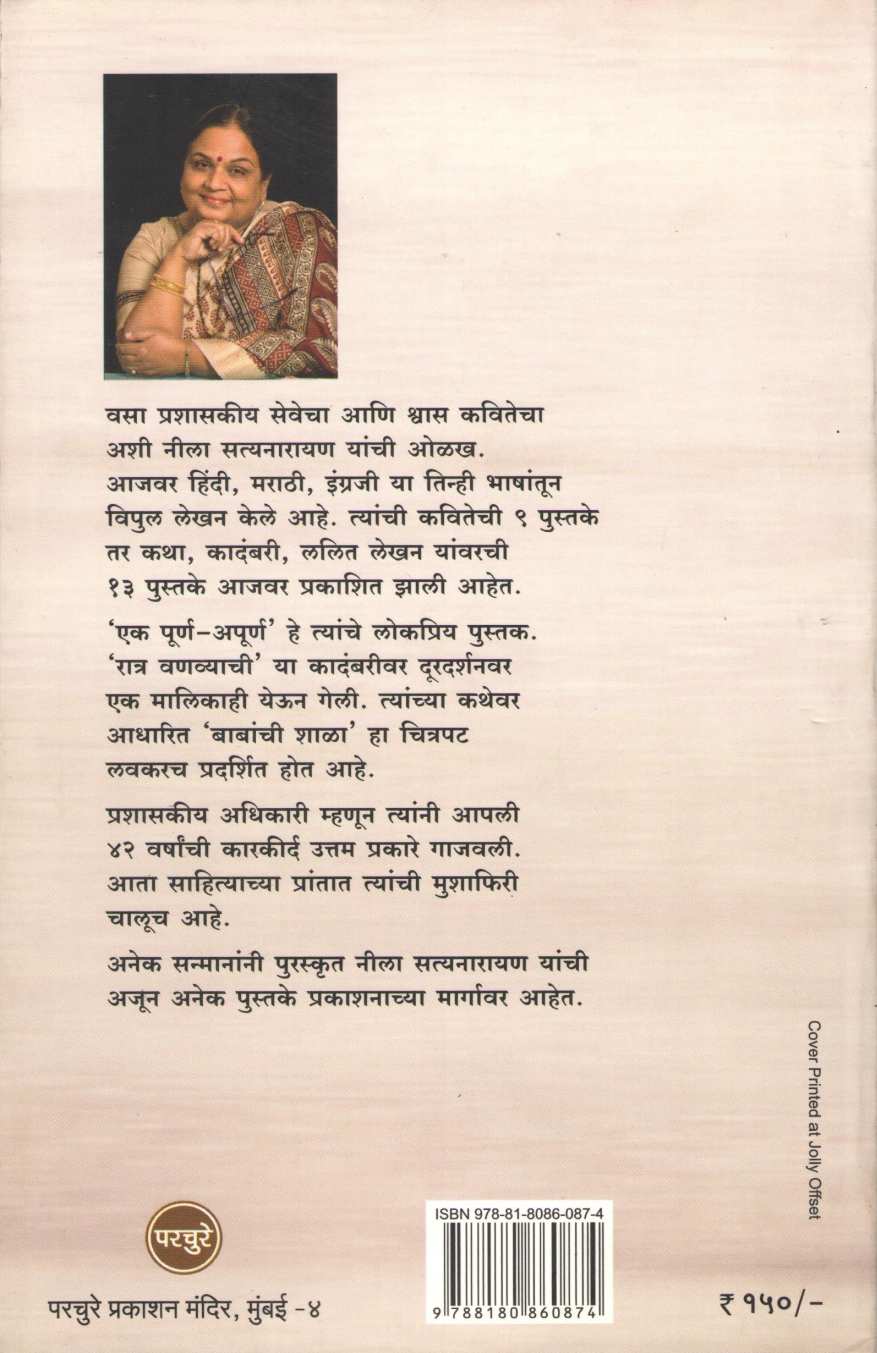 वसा प्रशासकीय सेवेचा आणि श्वास कवितेचा
अशी नीला सत्यनारायण यांची ओळख.
आजवर हिंदी, मराठी, इंग्रजी या तिन्ही भाषांतून
विपुल लेखन केले आहे. त्यांची कवितेची ९ पुस्तके
तर कथा, कादंबरी, ललित लेखन यांवरची
१३ पुस्तके आजवर प्रकाशित झाली आहेत.
‘एक पूर्ण–अपूर्ण’ हे त्यांचे लोकप्रिय पुस्तक.
‘रात्र वणव्याची’ या कादंबरीवर दूरदर्शनवर
एक मालिकाही येऊन गेली. त्यांच्या कथेवर
आधारित ‘बाबांची शाळा’ हा चित्रपट
लवकरच प्रदर्शित होत आहे.
प्रशासकीय अधिकारी म्हणून त्यांनी आपली
४२ वर्षांची कारकीर्द उत्तम प्रकारे गाजवली.
आता साहित्याच्या प्रांतात त्यांची मुशाफिरी
चालूच आहे.
अनेक सन्मानांनी पुरस्कृत नीला सत्यनारायण यांची
अजून अनेक पुस्तके प्रकाशनाच्या मार्गावर आहेत.
Cover Printed at Jolly Offset
परचुरे
परचुरे प्रकाशन मंदिर, मुंबई -४
ISBN 978-81-8086-087-4
9 788180 860874
₹ १५०/-